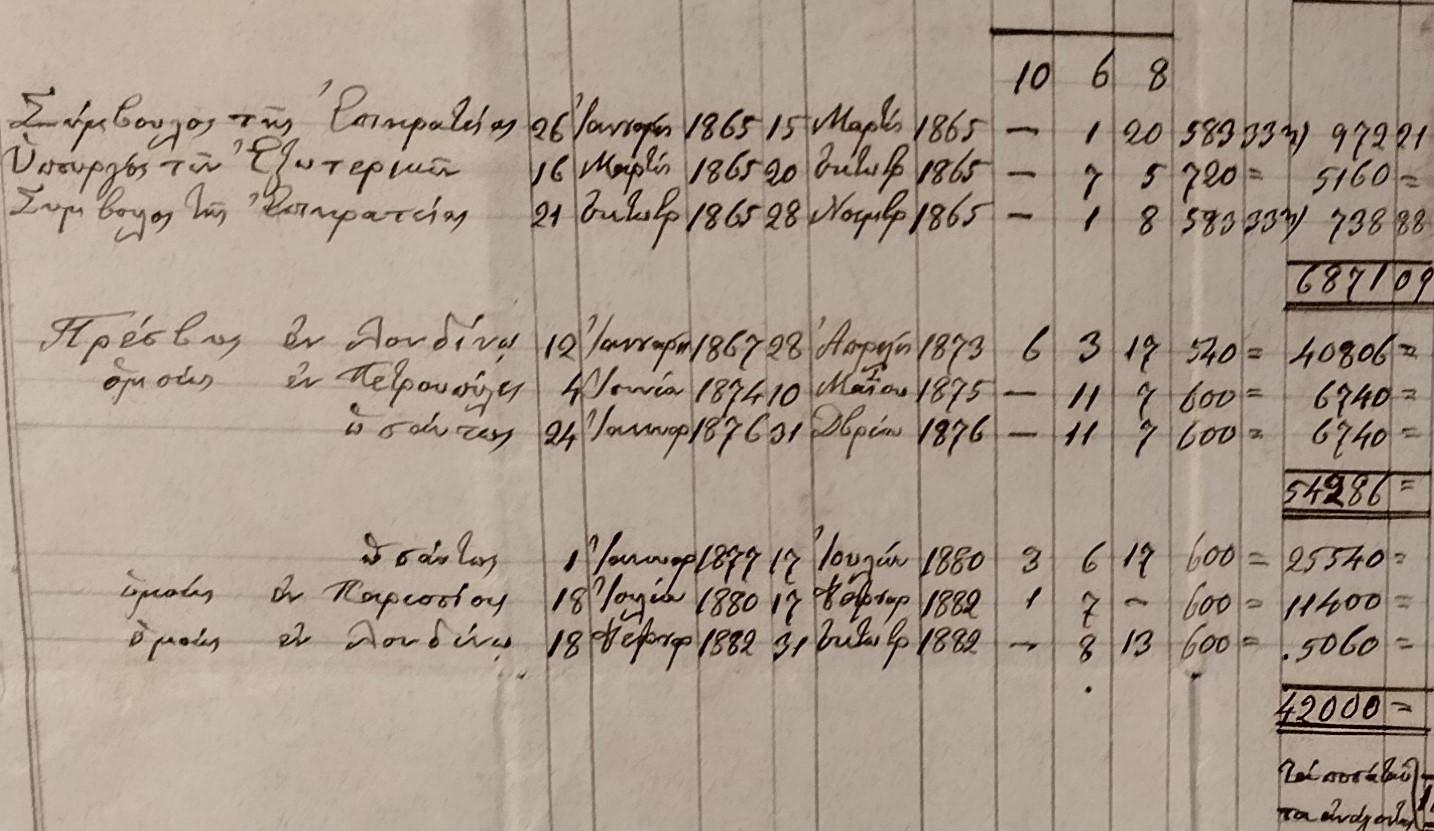 10 6 8
Σύμβουλος τῆς Ἐπικρατείας 26 Ἰανουαρίου 1865 15 Μαρτίου 1865 — 1 20 583 33⅓ 972 21
Ὑπουργὸς τῶν Ἐξωτερικῶν 16 Μαρτίου 1865 20 Ὀκτωβρ 1865 — 7 5 720 = 5160 =
Σύμβουλος τῆς Ἐπικρατείας 21 Ὀκτωβρ 1865 28 Νοεμβρ 1865 — 1 8 583 33⅓ 738 88
6871 09
Πρέσβυς ἐν Λονδίνῳ 12 Ἰανουαρίου 1867 28 Ἀπριλίου 1873 6 3 17 540 = 40806 =
ὁμοίως ἐν Πετρουπόλει 4 Ἰουνίου 1874 10 Μαΐου 1875 — 11 7 600 = 6740 =
ὡσαύτως 24 Ἰανουαρ 1876 31 Δβρίου 1876 — 11 7 600 = 6740 =
54286 =
ὡσαύτως 1 Ἰανουαρ 1877 17 Ἰουλίου 1880 3 6 17 600 = 25540 =
ὁμοίως ἐν Παρισίοις 18 Ἰουλίου 1880 17 Φεβρουαρ 1882 1 7 — 600 = 11400 =
ὁμοίως ἐν Λονδίνῳ 18 Φεβρουαρ 1882 31 Ὀκτωβρ 1882 — 8 13 600 = 5060 =
42000 =